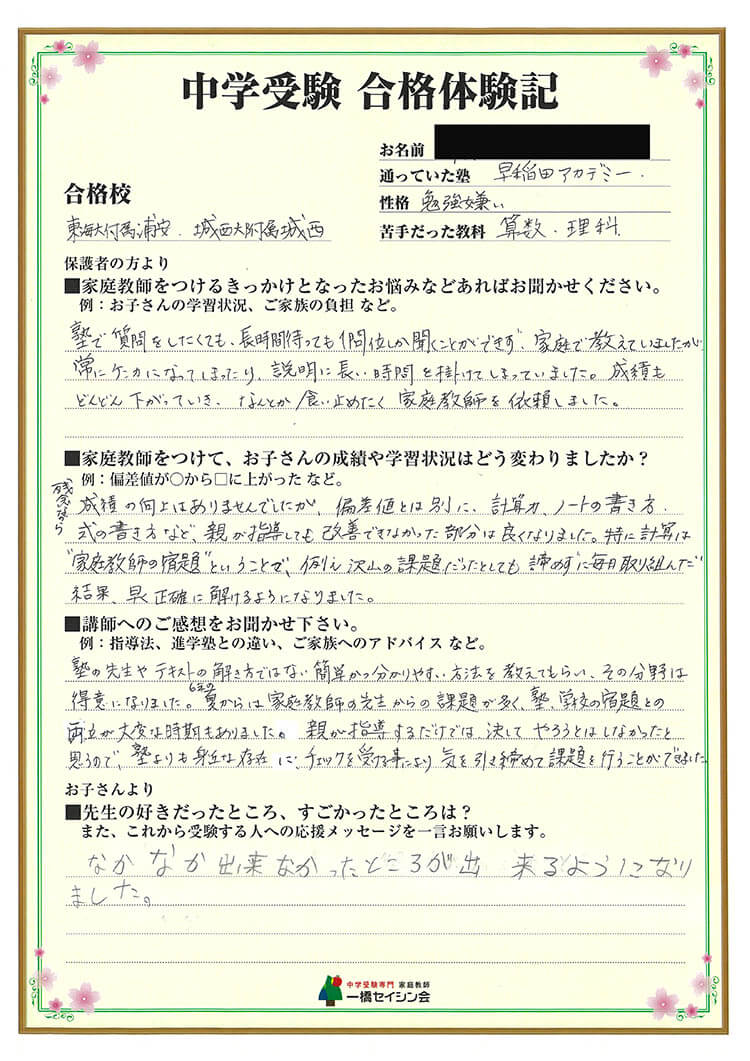 中学受験 合格体験記
お名前
通っていた塾 早稲田アカデミー.
合格校
性格 勉強嫌い
東海大付属浦安. 城西大附属城西
苦手だった教科 算数・理科.
保護者の方より
■家庭教師をつけるきっかけとなったお悩みなどあればお聞かせください。
例：お子さんの学習状況、ご家族の負担 など。
塾で質問をしたくても、長時間待っても1問位しか聞くことができず、家庭で教えていましたが、
常にケンカになってしまったり、説明に長い時間を掛けてしまっていました。成績も
どんどん下がっていき、なんとか食い止めたく家庭教師を依頼しました。
■家庭教師をつけて、お子さんの成績や学習状況はどう変わりましたか？
例：偏差値が○から□に上がった など。
残念ながら
成績の向上はありませんでしたが、偏差値とは別に、計算力、ノートの書き方.
式の書き方など、親が指導しても改善できなかった部分は良くなりました。特に計算は
"家庭教師の宿題"ということで、例え沢山の課題だったとしても諦めずに毎日取り組んだ
結果、早く正確に解けるようになりました。
■講師へのご感想をお聞かせ下さい。
例：指導法、進学塾との違い、ご家族へのアドバイス など。
塾の先生やテキストの解き方ではない簡単かつ分かりやすい方法を教えてもらい、その分野は
得意になりました。6年の夏からは家庭教師の先生からの課題が多く、塾、学校の宿題との
両立が大変な時期もありました。親が指導するだけでは、決してやろうとはしなかったと
思うので、塾よりも身近な存在に、チェックを受ける事により気を引き締めて課題を行うことができました
お子さんより
■先生の好きだったところ、すごかったところは？
また、これから受験する人への応援メッセージを一言お願いします。
なかなか出来なかったところが出来るようになり
ました。
中学受験専門 家庭教師
一橋セイシン会